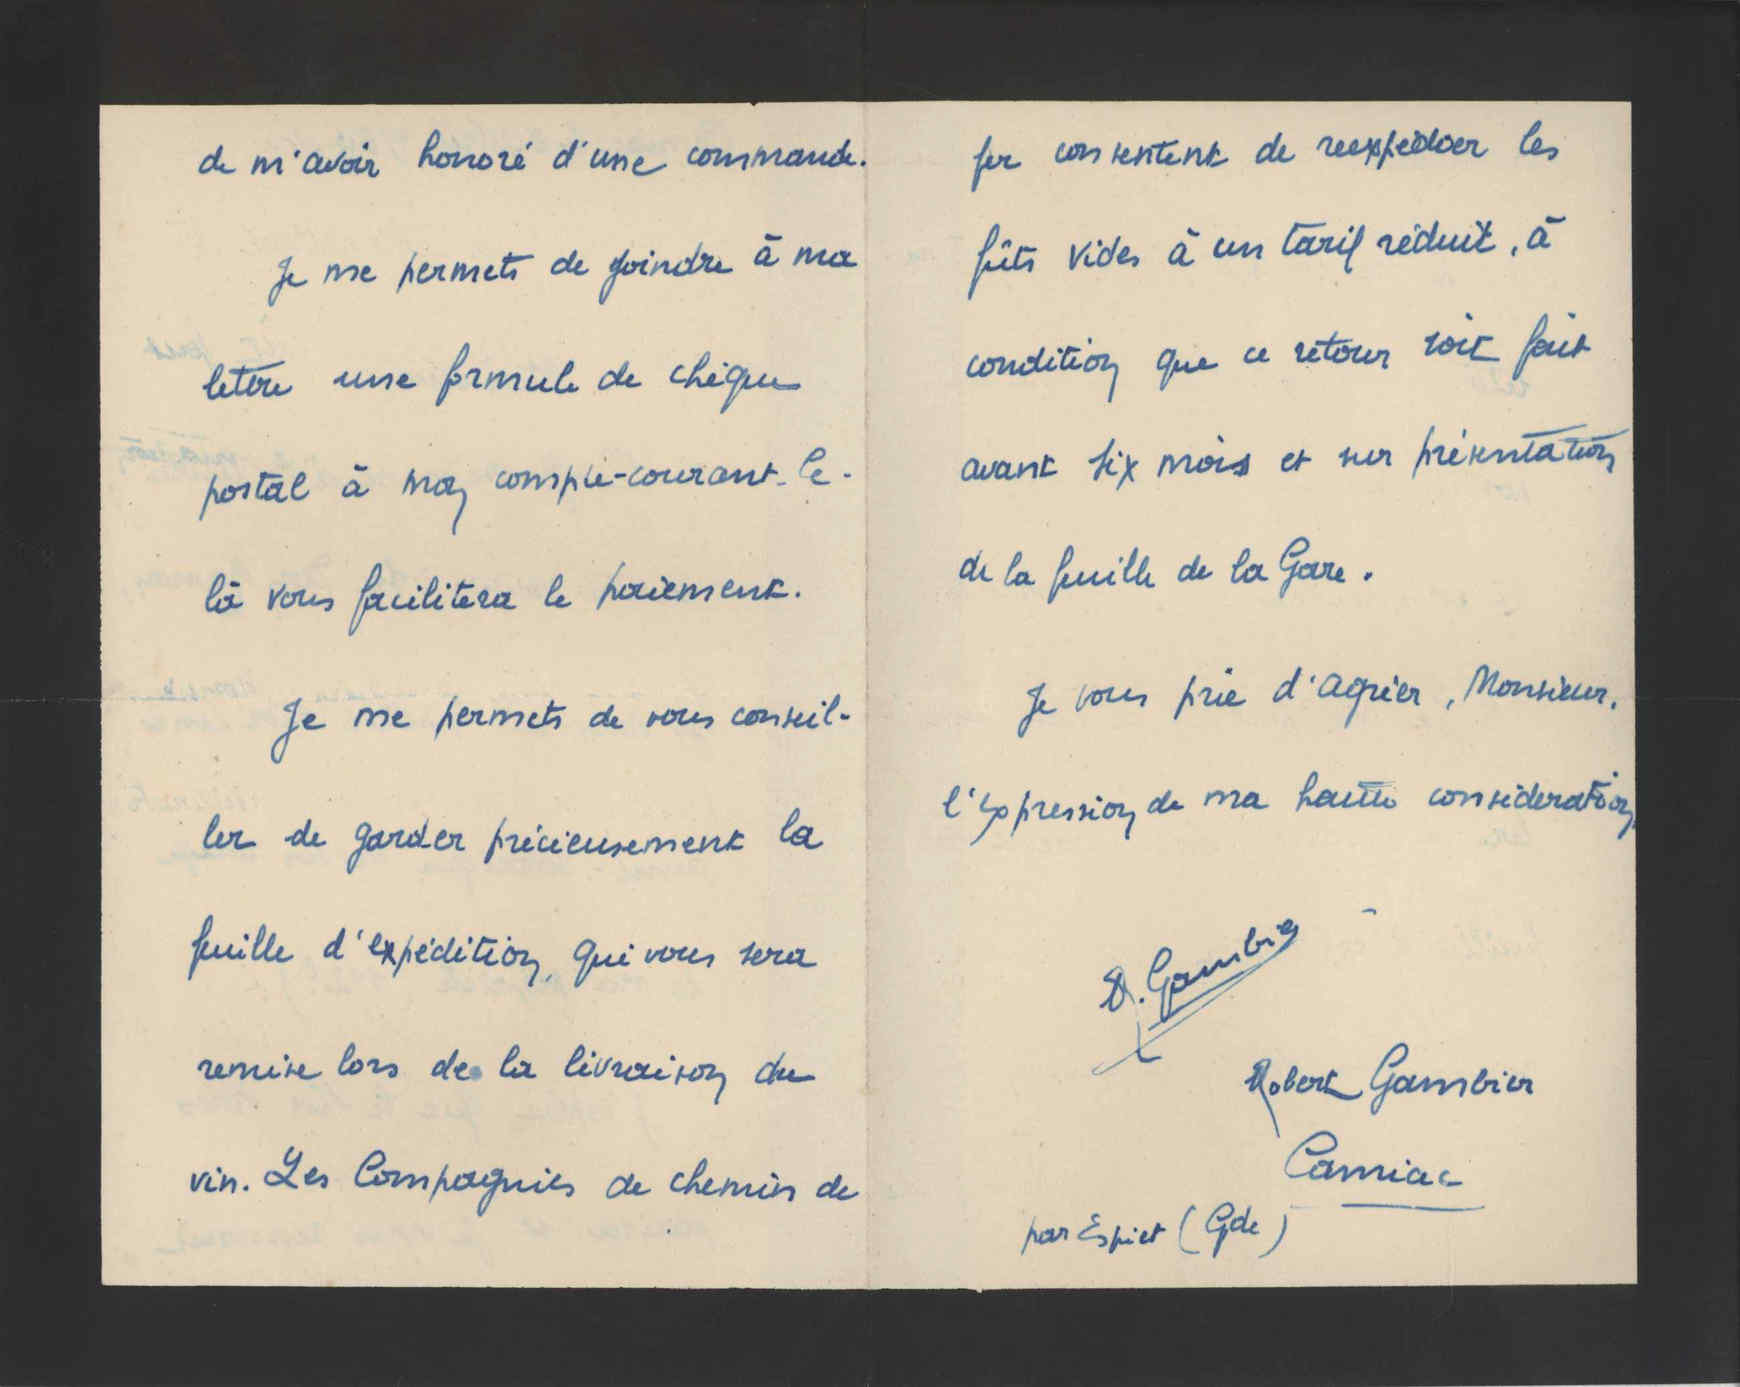 de m'avoir honoré d'une commande.
Je me permets de joindre à ma
lettre une formule de chèque
postal à mon compte-courant. Ce-
là vous facilitera le paiement.
Je me permets de vous conseil-
ler de garder précieusement la
feuille d'expédition, qui vous sera
remise lors de la livraison du
vin. Les Compagnies de chemin de
fer consentent de reexpédier les
fûts vides à un tarif réduit, à
condition que ce retour soit fait
avant six mois et sur présentation
de la feuille de la Gare.
Je vous prie d'agréer, Monsieur,
l'expression de ma haute considération
R. Gambier
Robert Gambier
Camiac
par Espiet (Gde)